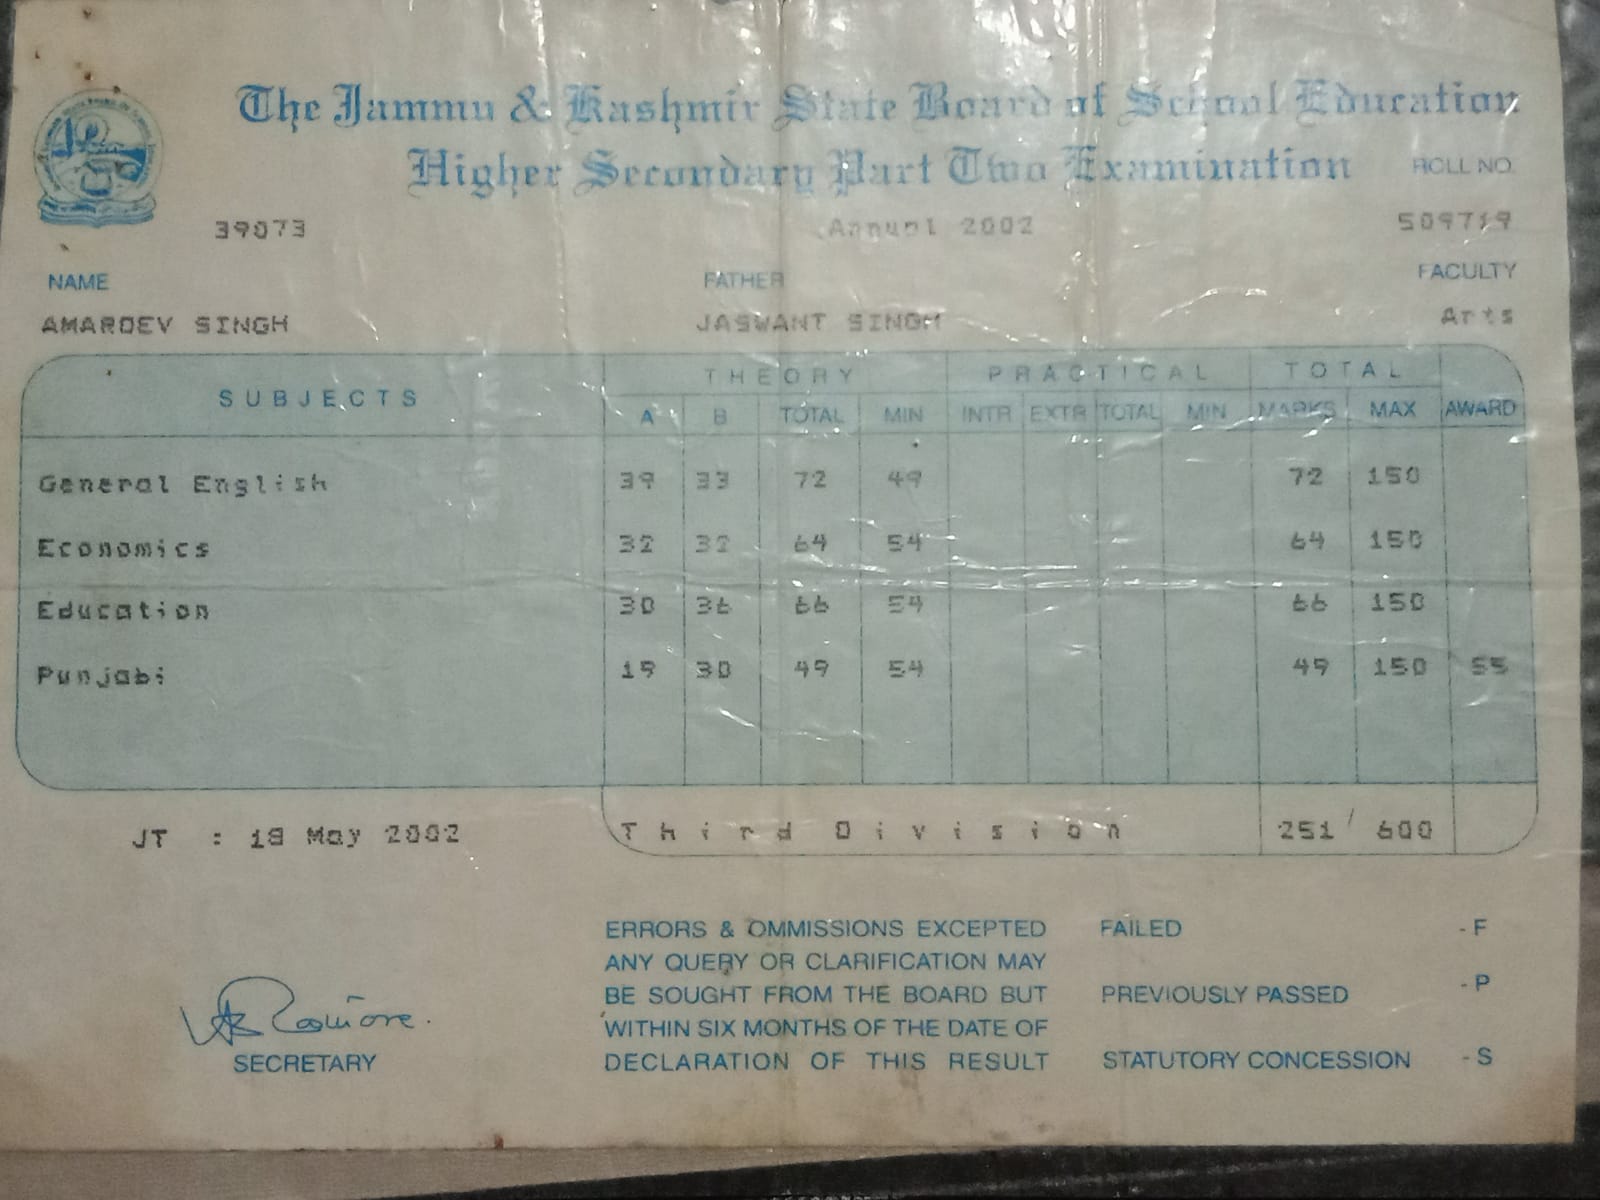 The Jammu & Kashmir State Board of School Education
Higher Secondary Part Two Examination
ROLL NO.
39073 Annual 2002 509719
NAME FATHER FACULTY
AMARDEV SINGH JASWANT SINGH Arts
SUBJECTS THEORY PRACTICAL TOTAL
A B TOTAL MIN INTR EXTR TOTAL MIN MARKS MAX AWARD
General English 39 33 72 49 72 150
Economics 32 32 64 54 64 150
Education 30 36 66 54 66 150
Punjabi 19 30 49 54 49 150 S5
JT : 18 May 2002 Third Division 251 / 600
ERRORS & OMMISSIONS EXCEPTED FAILED - F
ANY QUERY OR CLARIFICATION MAY
BE SOUGHT FROM THE BOARD BUT PREVIOUSLY PASSED - P
WITHIN SIX MONTHS OF THE DATE OF
SECRETARY DECLARATION OF THIS RESULT STATUTORY CONCESSION - S